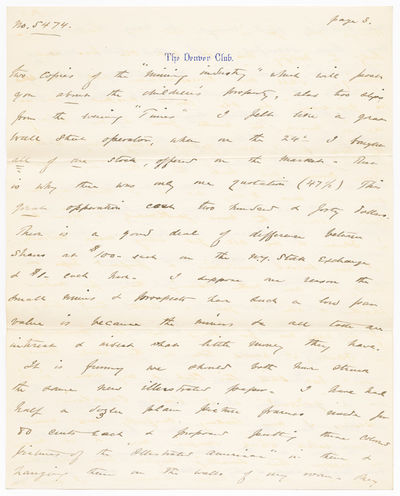 No. 5474.
page 3.
The Denver Club.
two copies of the "mining industry" which will post
you about the children's property, also two slips
from the evening "Times" I felt like a great
Wall Street operator, when on the 24th I bought
all of one stock, offered on the market. That
is why there was only one quotation (47½) This
great operation cost two hundred & forty dollars.
There is a good deal of difference between
shares at $100- each on the N.Y. Stock Exchange
& $1- each here. I suppose one reason the
small mines & prospects have such a low par
value is because the miners & all take an
interest & what little money they have.
It is funny we should both have struck
the same new illustrated paper. I have had
half a dozen plain picture frames made for
80 cents each & propose putting three colored
pictures of the "Illustrated American" in them &
hanging them on the walls of my room. They